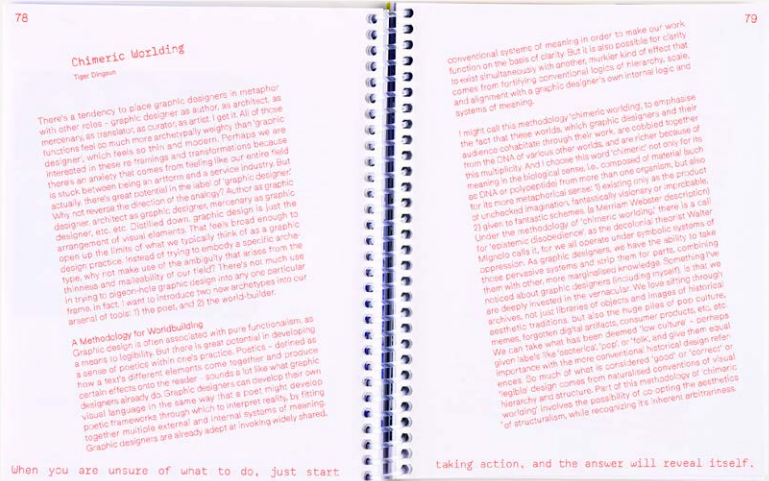 78
Chimeric Worlding
Tiger Dingsun
There's a tendency to place graphic designers in metaphor
with other roles – graphic designer as author, as architect, as
mercenary, as translator, as curator, as artist. I get it. All of those
functions feel so much more archetypally weighty than 'graphic
designer', which feels so thin and modern. Perhaps we are
interested in these re-framings and transformations because
there's an anxiety that comes from feeling like our entire field
is stuck between being an artform and a service industry. But
actually, there's great potential in the label of 'graphic designer.'
Why not reverse the direction of the analogy? Author as graphic
designer, architect as graphic designer, mercenary as graphic
designer, etc. etc. Distilled down, graphic design is just the
arrangement of visual elements. That feels broad enough to
open up the limits of what we typically think of as a graphic
design practice. Instead of trying to embody a specific arche-
type, why not make use of the ambiguity that arises from the
thinness and malleability of our field? There's not much use
in trying to pigeon-hole graphic design into any one particular
frame, in fact, I want to introduce two new archetypes into our
arsenal of tools: 1) the poet, and 2) the world-builder.
A Methodology for Worldbuilding
Graphic design is often associated with pure functionalism, as
a means to legibility. But there is great potential in developing
a sense of poetics within one's practice. Poetics – defined as
how a text's different elements come together and produce
certain effects onto the reader – sounds a lot like what graphic
designers already do. Graphic designers can develop their own
visual language in the same way that a poet might develop
poetic frameworks through which to interpret reality, by fitting
together multiple external and internal systems of meaning.
Graphic designers are already adept at invoking widely shared,
When you are unsure of what to do, just start
79
conventional systems of meaning in order to make our work
function on the basis of clarity. But it is also possible for clarity
to exist simultaneously with another, murkier kind of effect that
comes from fortifying conventional logics of hierarchy, scale,
and alignment with a graphic designer's own internal logic and
systems of meaning.
I might call this methodology 'chimeric worlding', to emphasise
the fact that these worlds, which graphic designers and their
audience cohabitate through their work, are cobbled together
from the DNA of various other worlds, and are richer because of
this multiplicity. And I choose this word 'chimeric' not only for its
meaning in the biological sense, i.e. composed of material (such
as DNA or polypeptide) from more than one organism, but also
for its more metaphorical sense: 1) existing only as the product
of unchecked imagination, fantastically visionary or improbable,
2) given to fantastic schemes. (a Merriam Webster description)
Under the methodology of 'chimeric worlding,' there is a call
for 'epistemic disobedience', as the decolonial theorist Walter
Mignolo calls it, for we all operate under symbolic systems of
oppression. As graphic designers, we have the ability to take
those pervasive systems and strip them for parts, combining
them with other, more marginalised knowledge. Something I've
noticed about graphic designers (including myself), is that we
are deeply invested in the vernacular. We love sifting through
archives, not just libraries of objects and images of historical
aesthetic traditions, but also the huge piles of pop culture,
memes, forgotten digital artifacts, consumer products, etc. etc.
We can take what has been deemed 'low culture' – perhaps
given labels like 'esoterica', 'pop', or 'folk', and give them equal
importance with the more conventional historical design refer-
ences. So much of what is considered 'good' or 'correct' or
'legible' design comes from naturalised conventions of visual
hierarchy and structure. Part of this methodology of 'chimeric
worlding' involves the possibility of co-opting the aesthetics
of structuralism, while recognizing its inherent arbitrariness.
taking action, and the answer will reveal itself.